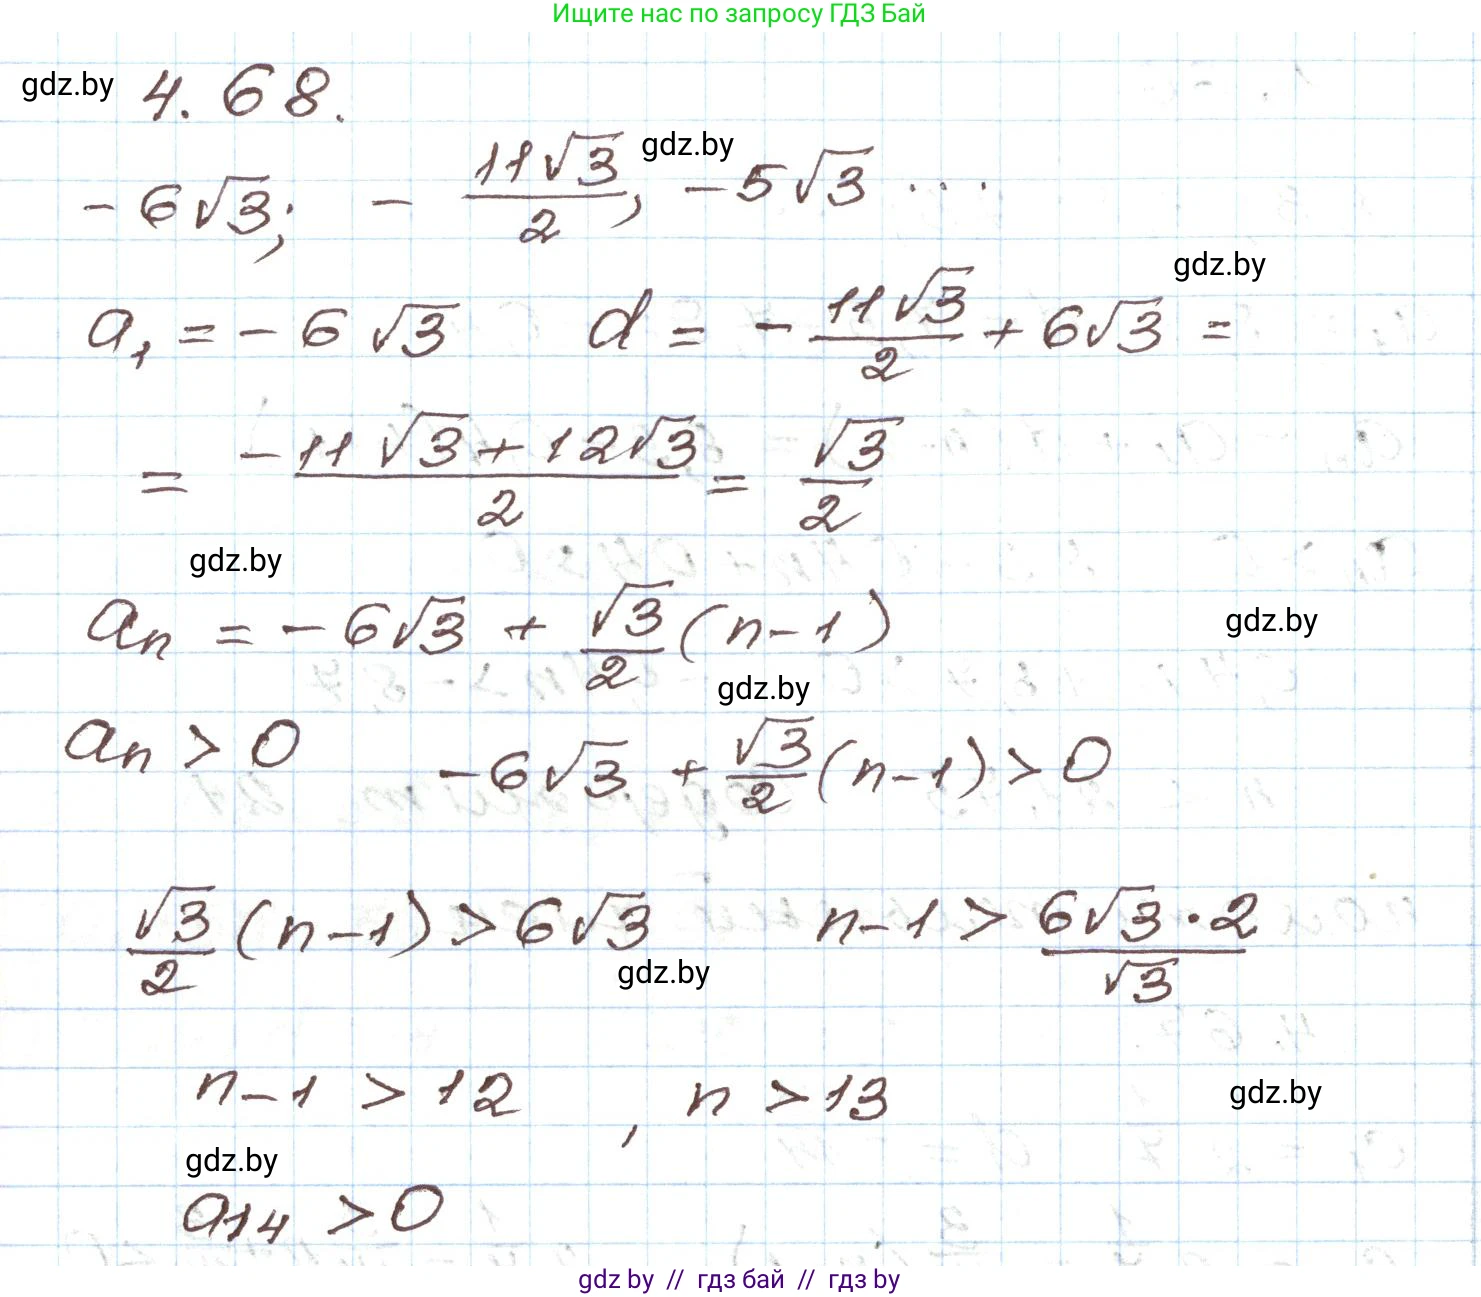 Ищите нас по запросу ГДЗ Бай
gdz.by 4.68.
-6√3; -11√3/2, -5√3 ... gdz.by
gdz.by
a₁ = -6√3 d = -11√3/2 + 6√3 =
= -11√3 + 12√3/2 = √3/2
gdz.by
aₙ = -6√3 + √3/2 (n-1) gdz.by
gdz.by
aₙ > 0 -6√3 + √3/2 (n-1) > 0
√3/2 (n-1) > 6√3 n-1 > 6√3·2/√3
gdz.by
n-1 > 12 , n > 13 gdz.by
gdz.by
a₁₄ > 0
gdz by // гдз бай // гдз by